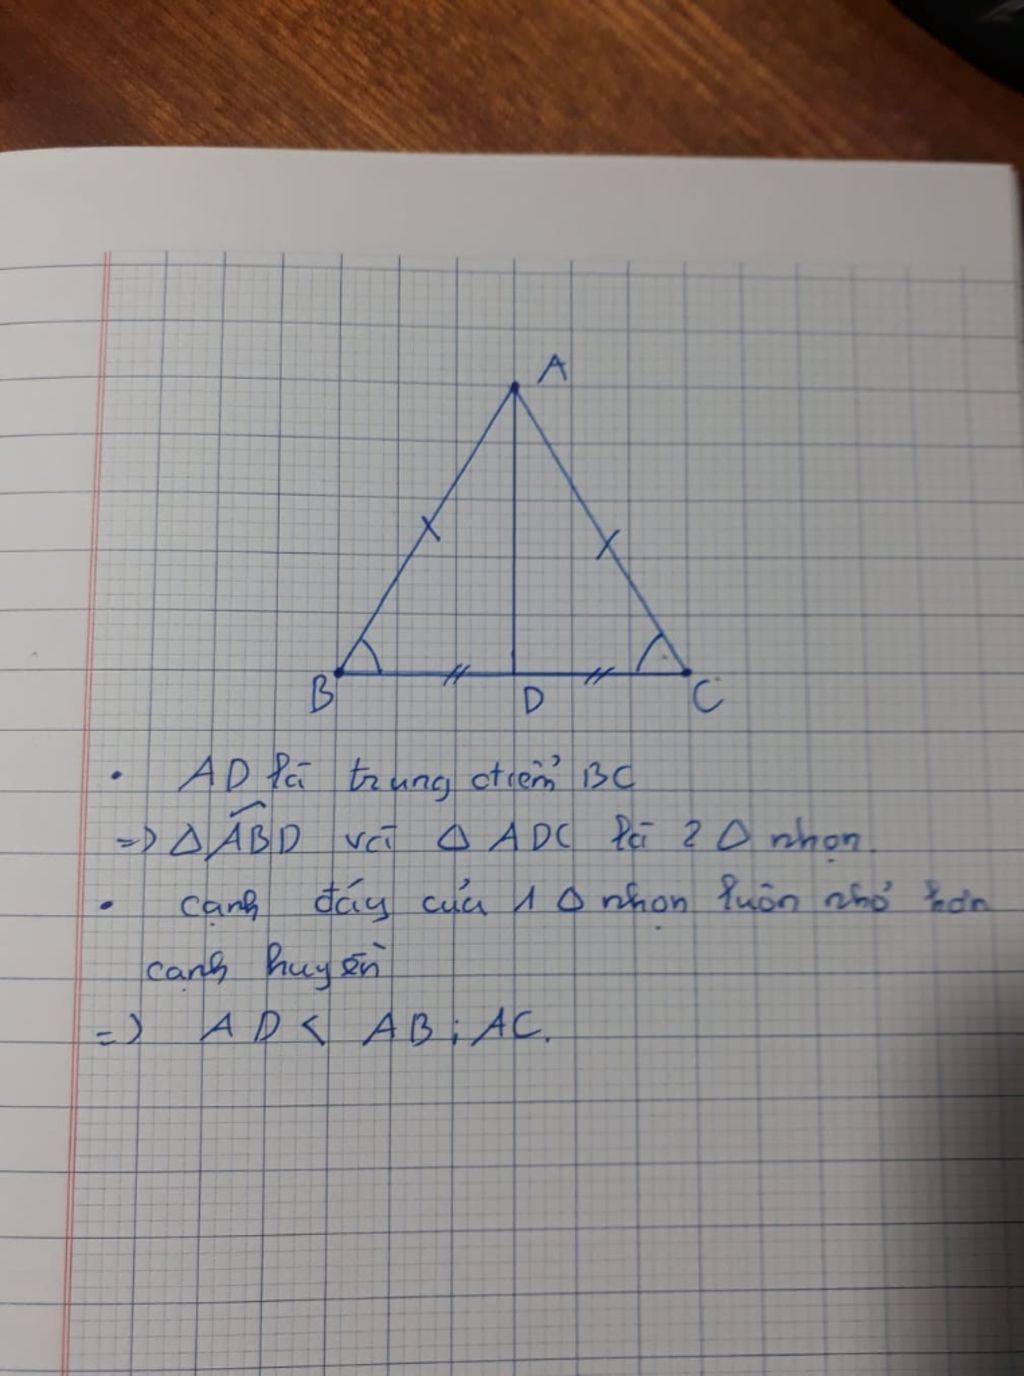 A
B
D
C
• AD là trung điểm BC
=> Δ ABD và Δ ADC là 2 Δ nhọn.
• cạnh đáy của 1 Δ nhọn luôn nhỏ hơn
cạnh huyền
=> AD < AB ; AC.